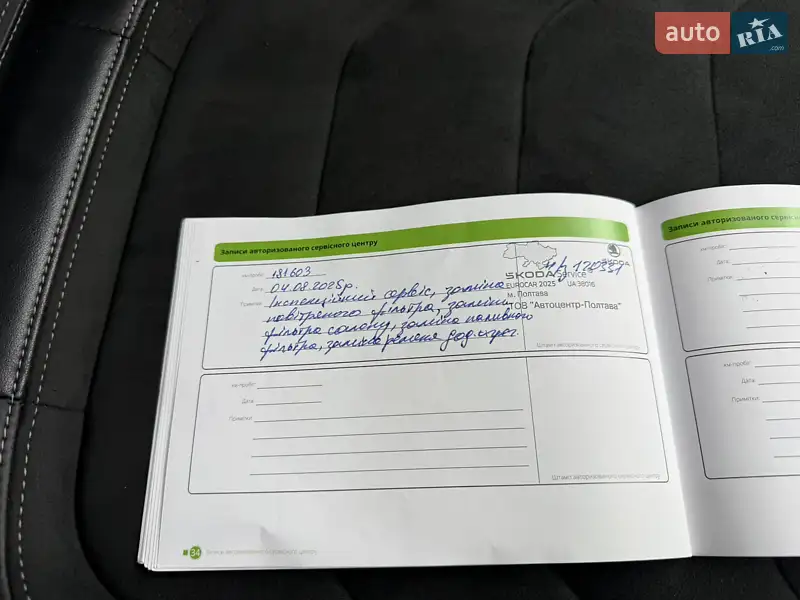 auto RIA .com
Записи авторизованого сервісного центру
км пробіг: 181.603
Дата: 04.08.2025р.
Примітки: Інспекційний сервіс, заміна
повітряного фільтра, заміна
фільтра салону, заміна паливного
фільтра, заміна ременя дод.агрег.
ŠKODA
ŠKODA Service
EUROCAR 2025 UA 38016
м. Полтава
ТОВ "Автоцентр-Полтава"
Штамп авторизованого сервісного центру
км пробіг:
Дата:
Примітки:
Штамп авторизованого сервісного центру
34 Записи авторизованого сервісного центру
Записи авторизованого
км пробіг:
Дата:
Примітки:
км пробіг:
Дата:
Примітки: